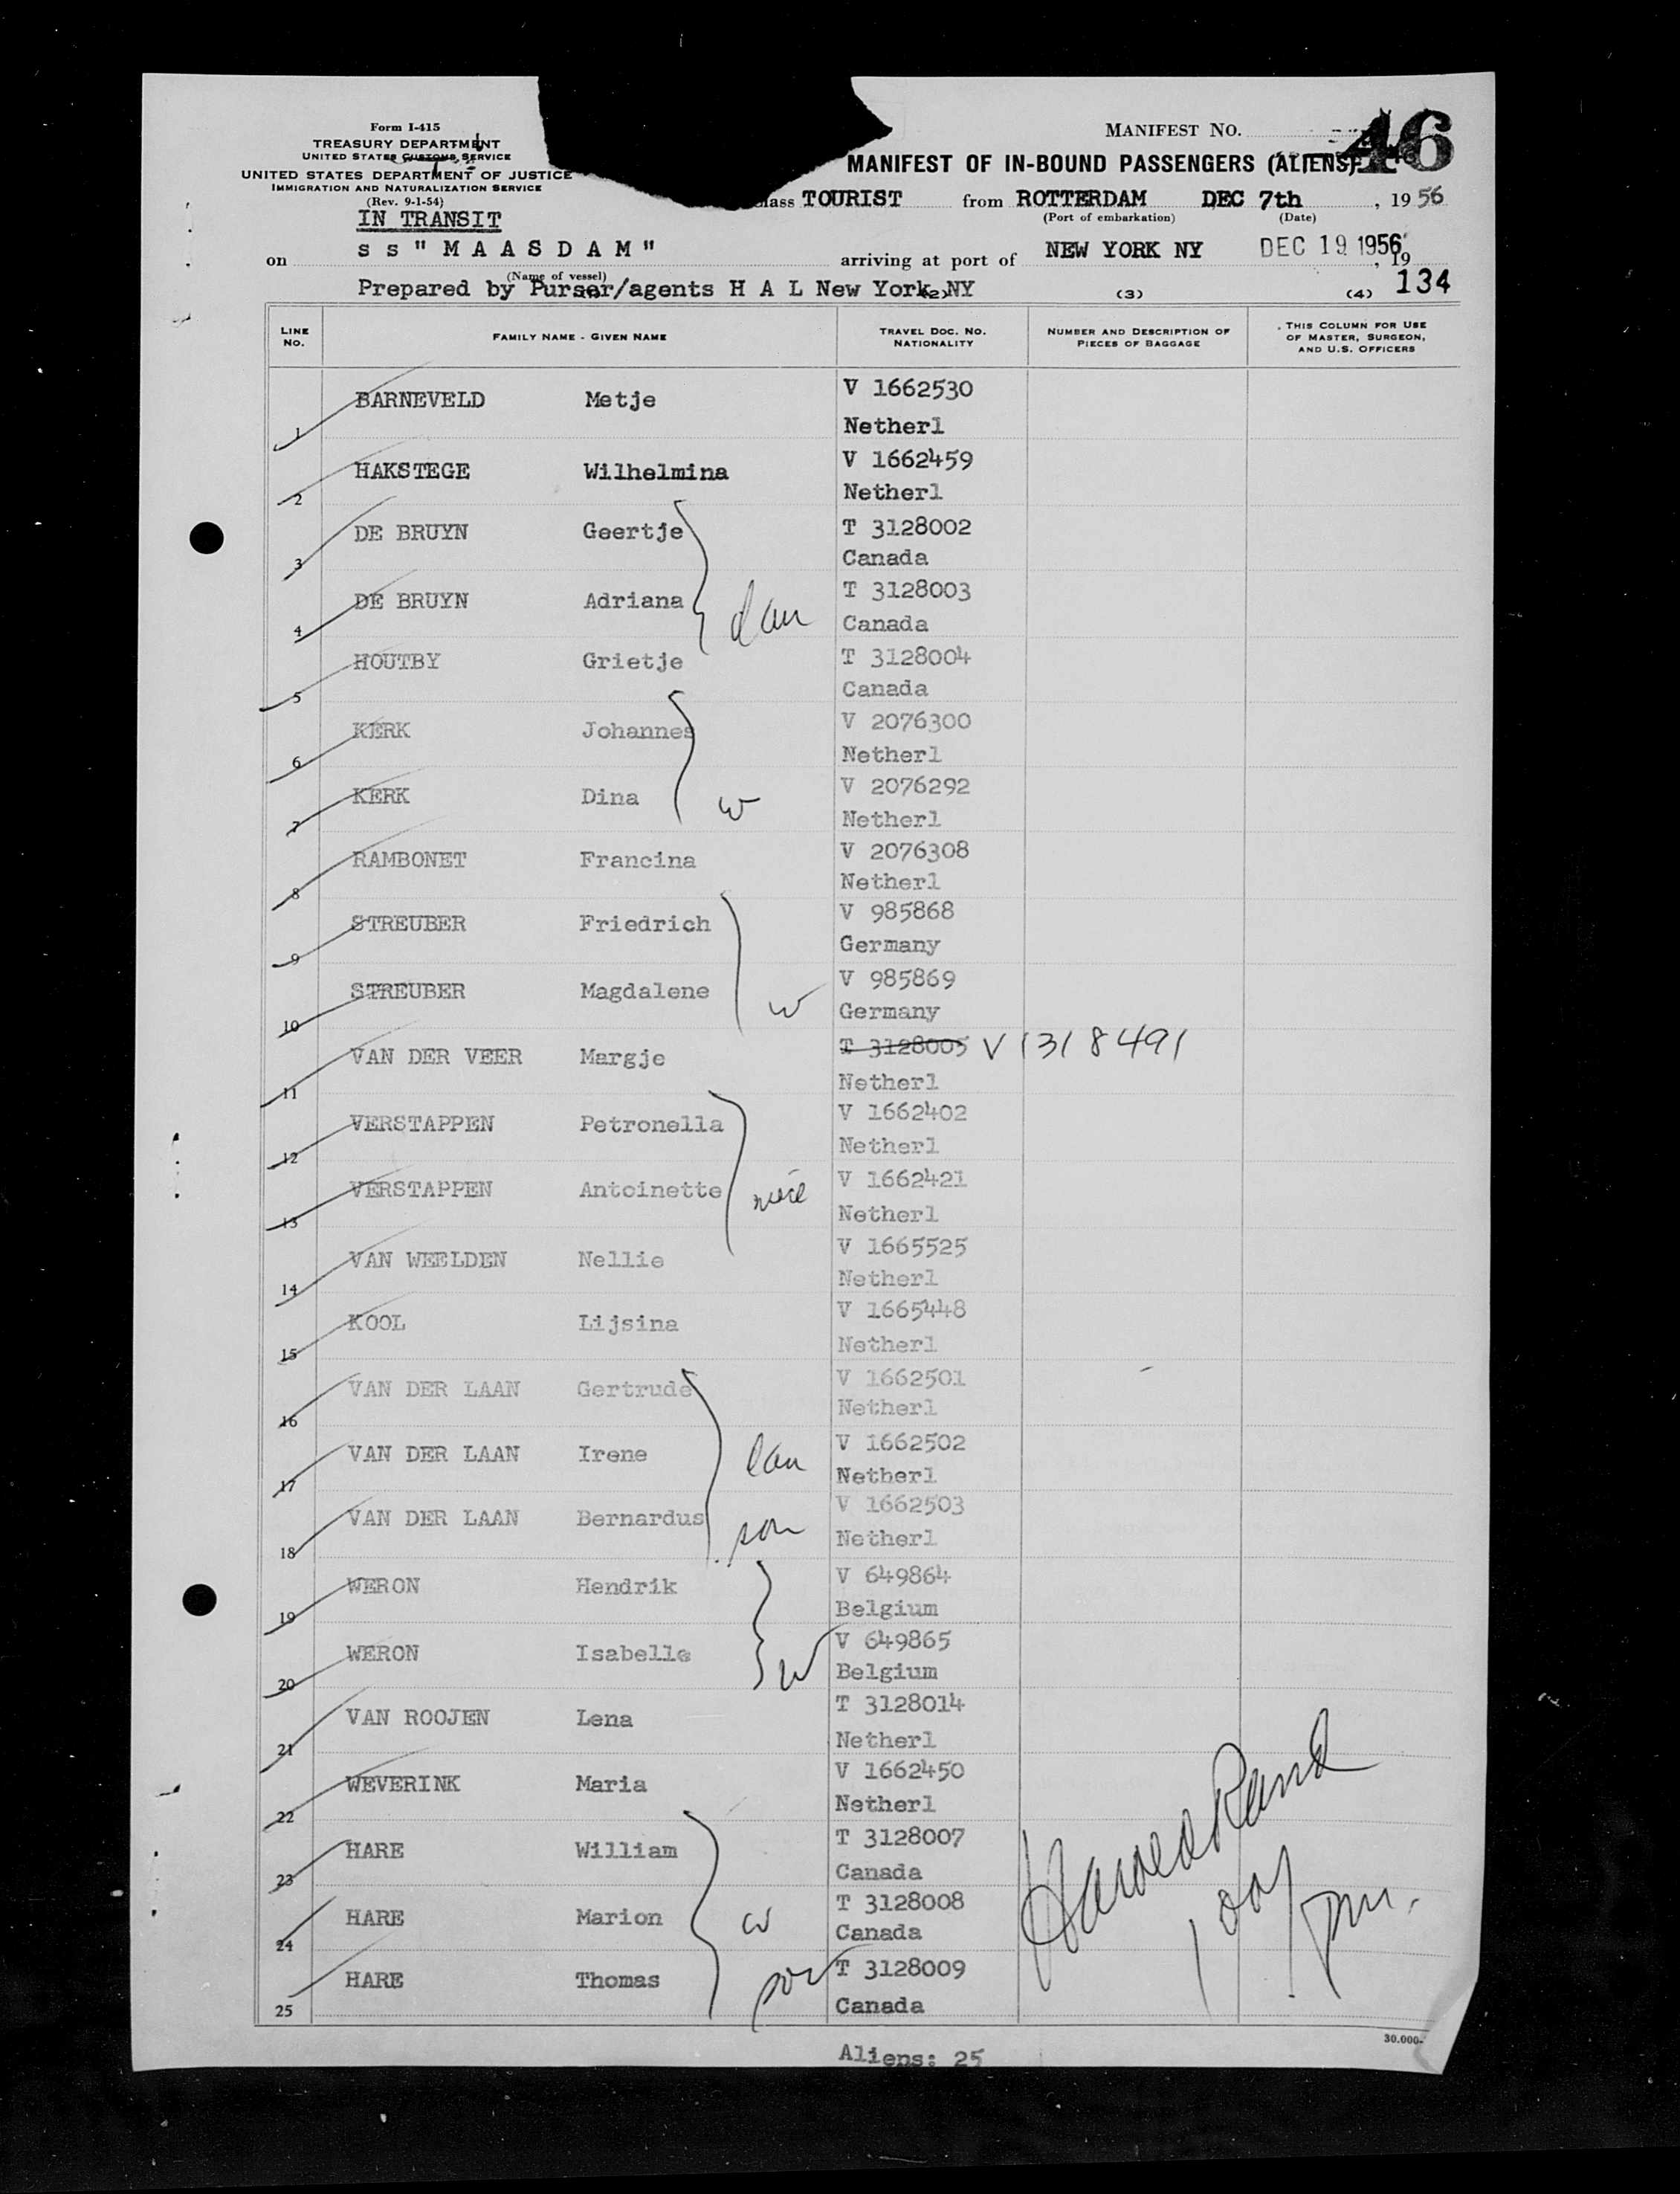 Form I-415
TREASURY DEPARTMENT
UNITED STATES CUSTOMS SERVICE
UNITED STATES DEPARTMENT OF JUSTICE
IMMIGRATION AND NATURALIZATION SERVICE
(Rev. 9-1-54)
IN TRANSIT
MANIFEST NO. 46
MANIFEST OF IN-BOUND PASSENGERS (ALIENS)
lass TOURIST from ROTTERDAM DEC 7th, 1956
(Port of embarkation) (Date)
on s s "M A A S D A M" arriving at port of NEW YORK NY DEC 19 1956, 19
(Name of vessel)
Prepared by Purser/agents H A L New York NY (2) (3) (4) 134
LINE NO. FAMILY NAME - GIVEN NAME TRAVEL DOC. NO. NATIONALITY NUMBER AND DESCRIPTION OF PIECES OF BAGGAGE THIS COLUMN FOR USE OF MASTER, SURGEON, AND U.S. OFFICERS
1 BARNEVELD Metje V 1662530
Netherl
2 HAKSTEGE Wilhelmina V 1662459
Netherl
3 DE BRUYN Geertje T 3128002
Canada
4 DE BRUYN Adriana dau T 3128003
Canada
5 HOUTBY Grietje T 3128004
Canada
6 KERK Johannes V 2076300
Netherl
7 KERK Dina w V 2076292
Netherl
8 RAMBONET Francina V 2076308
Netherl
9 STREUBER Friedrich V 985868
Germany
10 STREUBER Magdalene w V 985869
Germany
11 VAN DER VEER Margje T 3128005 V 1318491
Netherl
12 VERSTAPPEN Petronella V 1662402
Netherl
13 VERSTAPPEN Antoinette niece V 1662421
Netherl
14 VAN WEELDEN Nellie V 1665525
Netherl
15 KOOL Lijsina V 1665448
Netherl
16 VAN DER LAAN Gertrude V 1662501
Netherl
17 VAN DER LAAN Irene dau V 1662502
Netherl
18 VAN DER LAAN Bernardus son V 1662503
Netherl
19 WERON Hendrik V 649864
Belgium
20 WERON Isabelle w V 649865
Belgium
21 VAN ROOJEN Lena T 3128014
Netherl
22 WEVERINK Maria V 1662450
Netherl
23 HARE William T 3128007
Canada
24 HARE Marion w T 3128008
Canada
25 HARE Thomas son T 3128009
Canada
Harold Rand
100 pm.
30.000-
Aliens: 25